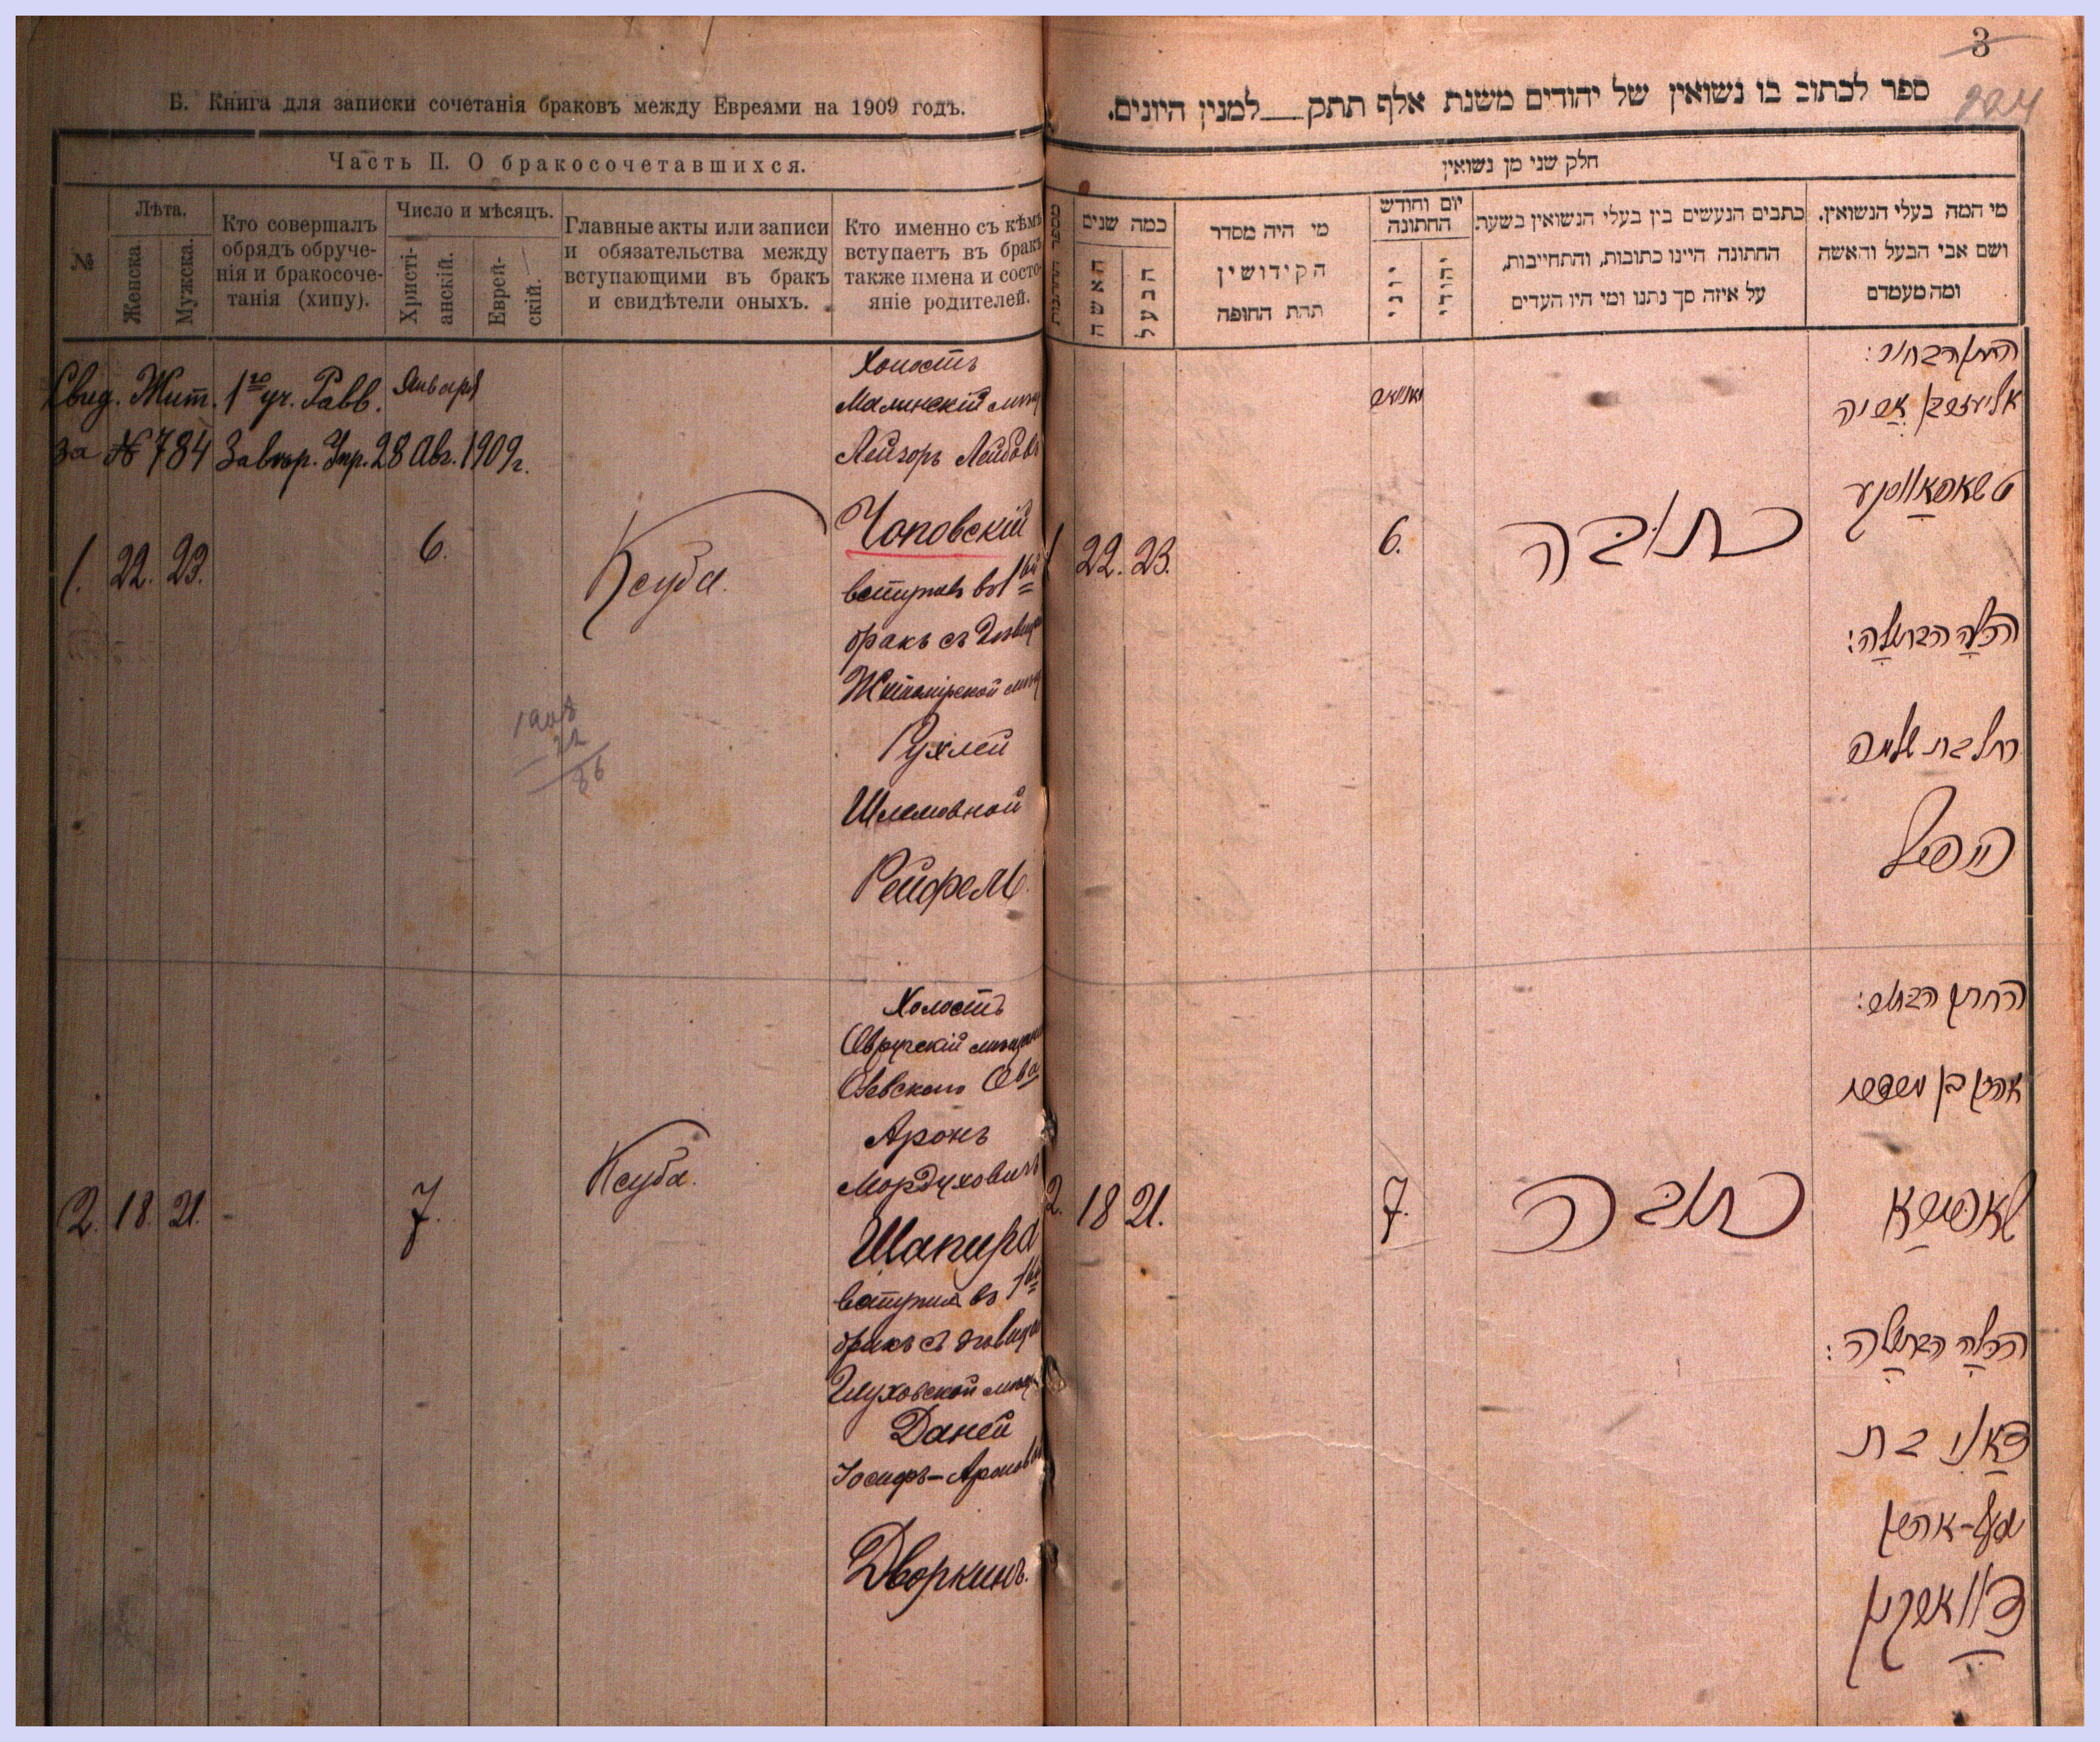 Б. Книга для записки сочетанія браковъ между Евреями на 1909 годъ.
Часть II. О бракосочетавшихся.
№
Лѣта.
Женска.
Мужска.
Кто совершалъ
обрядъ обруче-
нія и бракосоче-
танія (хипу).
Число и мѣсяцъ.
Христі-
анскій.
Еврей-
скій.
Главные акты или записи
и обязательства между
вступающими въ бракъ
и свидѣтели оныхъ.
Кто именно съ кѣмъ
вступаетъ въ бракъ
также имена и состо-
яніе родителей.
Свид. Жит. 1го уч. Равв.
за № 784 Завѣр. Упр. 28 Авг. 1909 г.
Января
1. 22. 23.
6.
Ксуба.
Холостъ
Малинскій мѣщ
Лейзоръ Лейбовъ
Чоповскій
вступилъ въ 1ый
бракъ съ дѣвицей
Житомірской мѣщ
Рухлей
Шлемовной
Рейфель.
1908
22
86
2. 18. 21.
7.
Ксуба.
Холостъ
Овручскій мѣщанинъ
Олевскаго Ова
Аронъ
Мордуховичъ
Шапира
вступилъ въ 1ый
бракъ съ дѣвицей
Глуховской мѣщ
Даней
Іосифъ-Ароновой
Дворкинъ.
3
224
ספר לכתוב בו נשואין של יהודים משנת אלף תתק__למנין היונים.
חלק שני מן נשואין
מספר החתונות
כמה שנים
האשה
הבעל
מי היה מסדר
הקידושין
תחת החופה
יום וחודש
החתונה
יוני
יהודי
כתבים הנעשים בין בעלי הנשואין בשעת
החתונה היינו כתובות, והתחייבות,
על איזה סך נתנו ומי היו העדים
מי המה בעלי הנשואין.
ושם אבי הבעל והאשה
ומה מעמדם
יאנוואר
1 22. 23.
6.
כתובה
החתן הבחור:
אליעזר בן אריה
טשאפאווסקי
הכלה הבתולה:
רחל בת שלמה
רייפיל
2. 18 21.
7.
כתובה
החתן הבחור:
אהרן בן מרדכי
שאפירא
הכלה הבתולה:
דאני בת
יוסף-אהרן
דווארקין